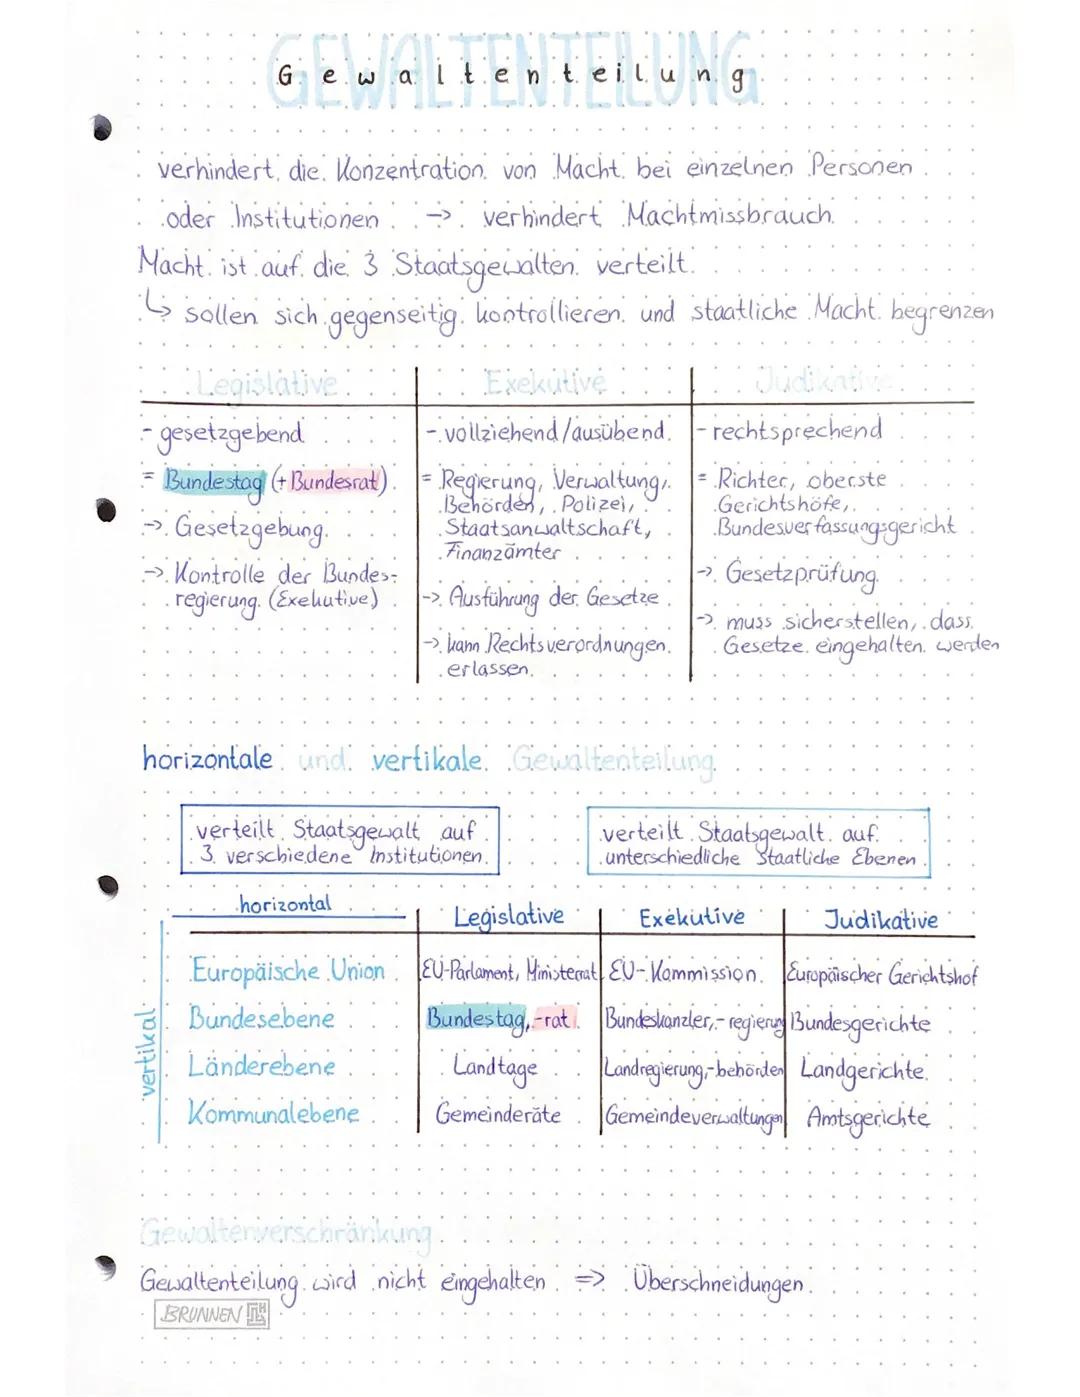 GEWALTENTEILUNG
Gewaltenteilung
verhindert die Konzentration von Macht bei einzelnen Personen
oder Institutionen -> verhindert Machtmissbrauch
Macht ist auf die 3 Staatsgewalten verteilt
↳ sollen sich gegenseitig kontrollieren und staatliche Macht begrenzen
Legislative
- gesetzgebend
= Bundestag (+Bundesrat)
-> Gesetzgebung
-> Kontrolle der Bundes-
regierung (Exekutive)
Exekutive
- vollziehend/ausübend
= Regierung, Verwaltung,
Behörden, Polizei,
Staatsanwaltschaft,
Finanzämter
-> Ausführung der Gesetze
-> kann Rechtsverordnungen
erlassen
Judikative
- rechtsprechend
= Richter, oberste
Gerichtshöfe,
Bundesverfassungsgericht
-> Gesetzprüfung
-> muss sicherstellen, dass
Gesetze eingehalten werden
horizontale und vertikale Gewaltenteilung
verteilt Staatsgewalt auf
3 verschiedene Institutionen
verteilt Staatsgewalt auf
unterschiedliche Staatliche Ebenen
horizontal Legislative Exekutive Judikative
vertikal
Europäische Union EU-Parlament, Ministerrat EU-Kommission Europäischer Gerichtshof
Bundesebene Bundestag,-rat Bundeskanzler,-regierung Bundesgerichte
Länderebene Landtage Landregierung,-behörden Landgerichte
Kommunalebene Gemeinderäte Gemeindeverwaltungen Amtsgerichte
Gewaltenverschränkung
Gewaltenteilung wird nicht eingehalten => Überschneidungen
BRUNNEN